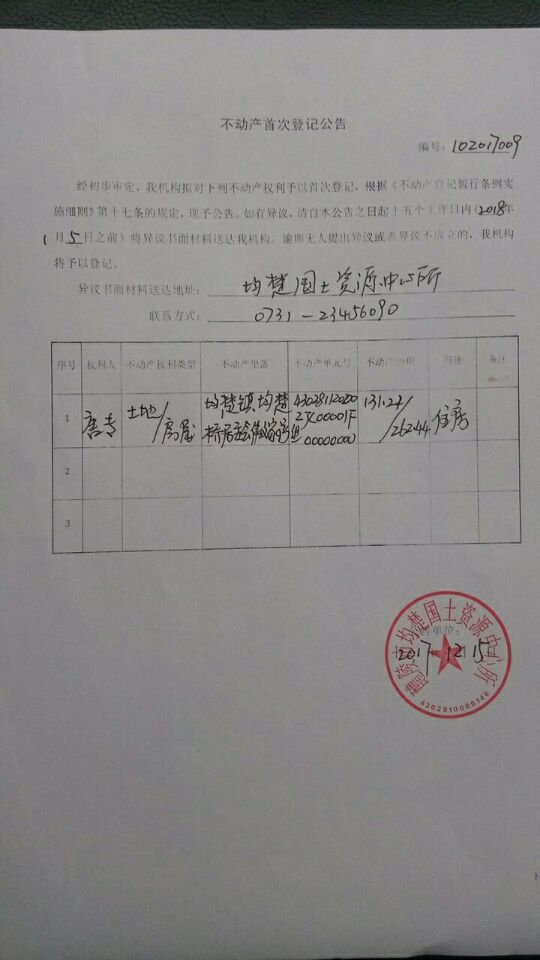 不动产首次登记公告
编号：102017009
经初步审定，我机构拟对下列不动产权利予以首次登记，根据《不动产登记暂行条例实
施细则》第十七条的规定，现予公告。如有异议，请自本公告之日起十五个工作日内（2018年
1月5日之前）将异议书面材料送达我机构。逾期无人提出异议或者异议不成立的，我机构
将予以登记。
异议书面材料送达地址：均楚国土资源中心所
联系方式：0731-23456090
序号 权利人 不动产权利类型 不动产坐落 不动产单元号 不动产面积 用途 备注
1 土地/房屋 均楚镇均楚 131.24/262.44 住房
桥居委会
00000000
2
3
醴陵市均楚国土资源中心所
公告单位：
2017 12 15
4302810000146